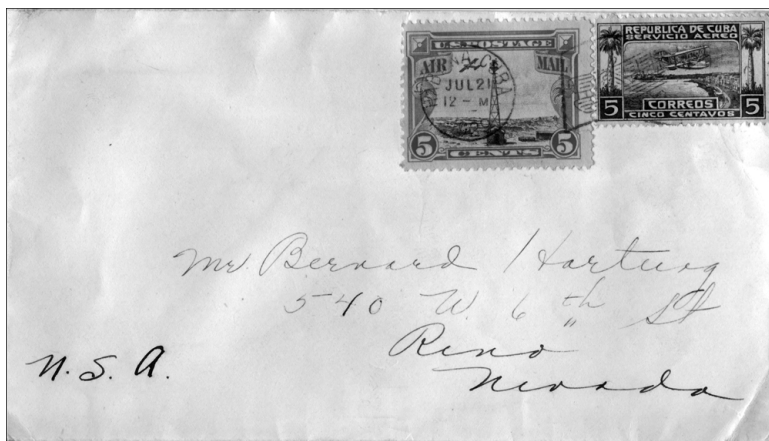 U.S. POSTAGE
AIR MAIL
5 CENTS 5
HABANA, CUBA
JUL 21
12 - M
REPUBLICA DE CUBA
SERVICIO AEREO
5 CORREOS 5
CINCO CENTAVOS
Mr. Bernard Hartung
540 W. 6th St
Reno
Nevada
U. S. A.